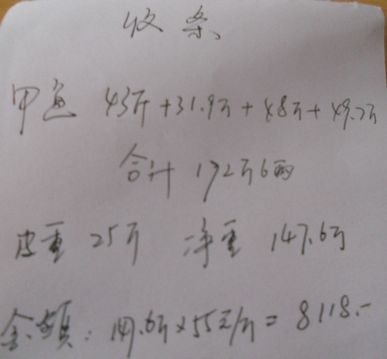 收条
甲鱼 43斤+31.9斤+48斤+49.7斤
合计 172斤6两
皮重 25斤 净重 147.6斤
金额：147.6斤×55元/斤=8118.-